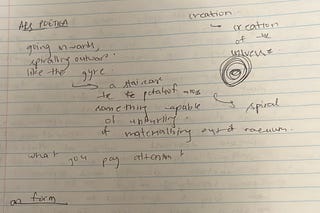 ARS POETICA
creation
creation
of the
universe
going inwards,
spiralling outwards.
like the gyre
a staircase
the petals of
something capable
spiral
of unfurling.
of materialising out of vacuum.
what you pay attention t
on form